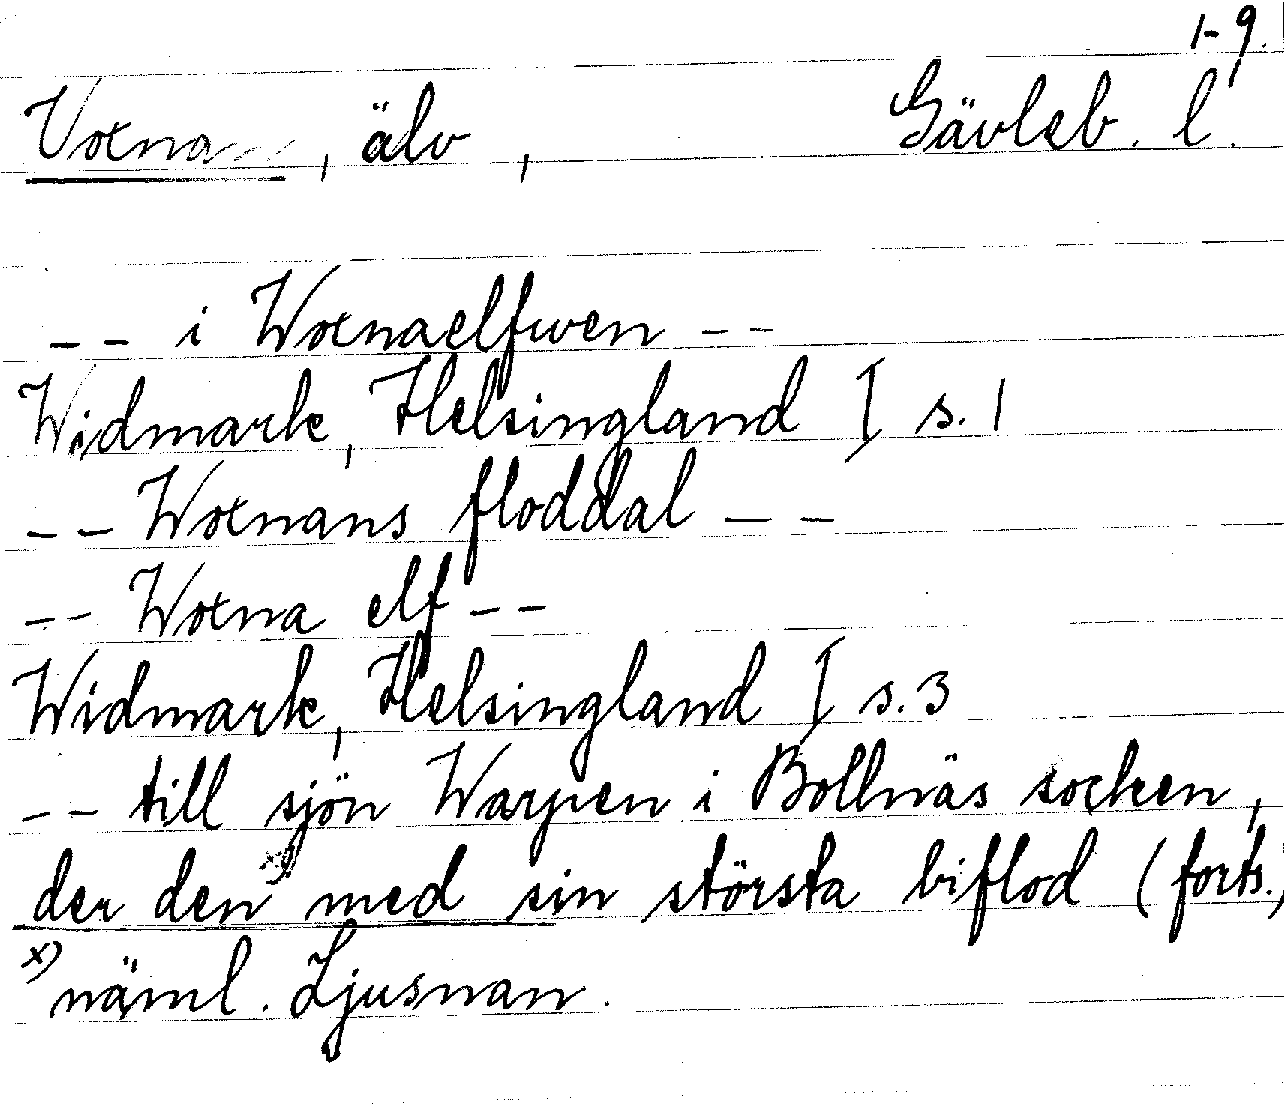 1-9.
Voxna, älv, Gävleb. l.
-- i Woxnaelfwen --
Widmark, Helsingland I s. 1
-- Woxnans floddal --
-- Woxna elf --
Widmark, Helsingland I s. 3
-- till sjön Warpen i Bollnäs socken,
der den x) med sin största biflod (forts.)
x) näml. Ljusnan.